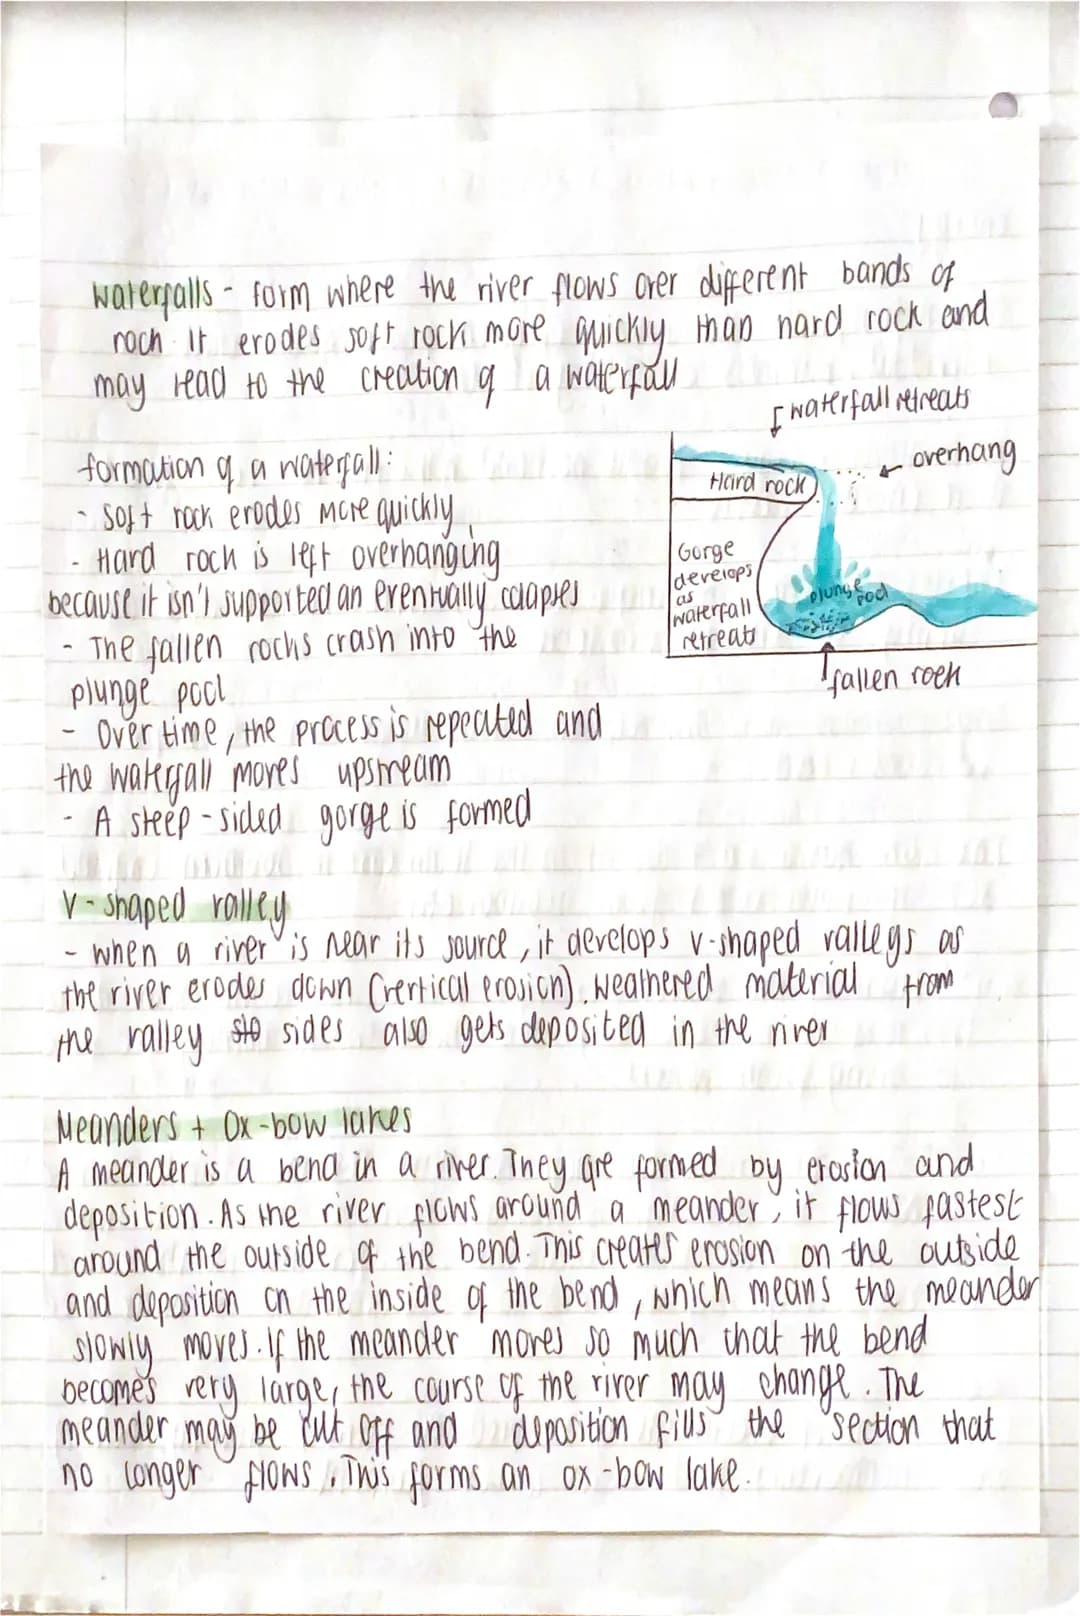 waterfalls - form where the river flows over different bands of
rock. It erodes soft rock more quickly than hard rock and
may lead to the creation of a waterfall
waterfall retreats
overhang
formation of a waterfall:
- Soft rock erodes more quickly
- Hard rock is left overhanging
because it isn't supported an eventually colapses
- The fallen rocks crash into the
plunge pool
- Over time, the process is repeated and
the waterfall moves upstream
- A steep-sided gorge is formed
Hard rock
Gorge
develops
as
waterfall
retreats
plunge
pool
fallen rock
V-shaped valley
- when a river is near its source, it develops v-shaped valleys as
the river erodes down (vertical erosion). weathered material from
the valley sides also gets deposited in the river
Meanders + Ox-bow lakes
A meander is a bend in a river. They are formed by erosion and
deposition. As the river flows around a meander, it flows fastest
around the outside of the bend. This creates erosion on the outside
and deposition on the inside of the bend, which means the meander
slowly moves. If the meander moves so much that the bend
becomes very large, the course of the river may change. The
meander may be cut off and deposition fills the section that
no longer flows. This forms an ox-bow lake.